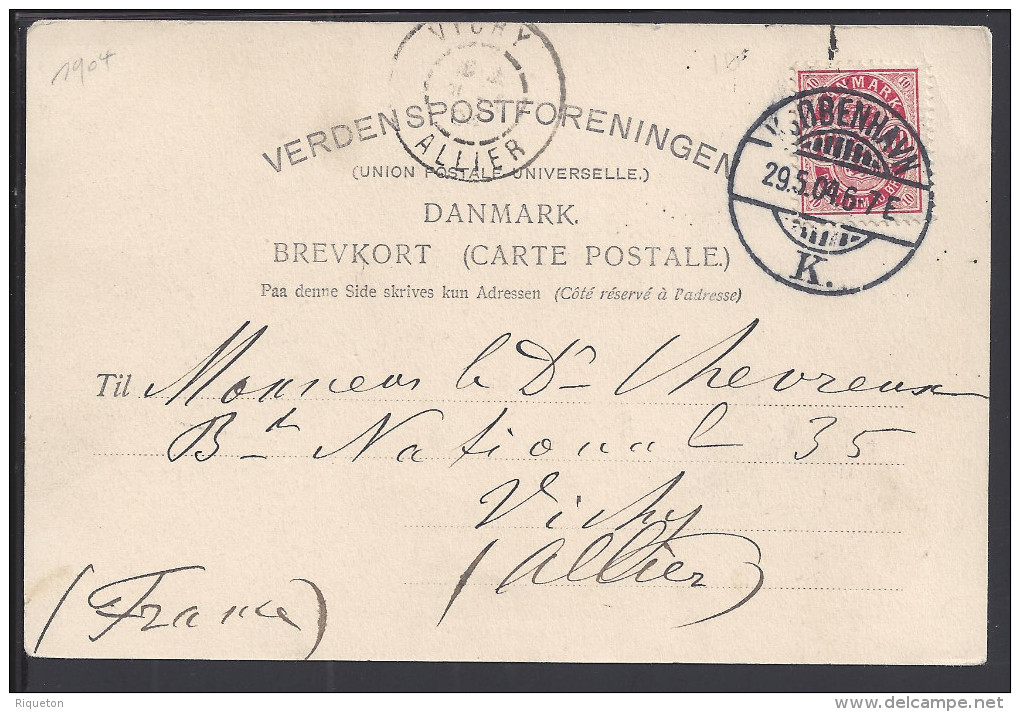 1904
VICHY
ALLIER
VERDENSPOSTFORENINGEN
(UNION POSTALE UNIVERSELLE.)
DANMARK.
BREVKORT (CARTE POSTALE.)
Paa denne Side skrives kun Adressen (Côté réservé à l'adresse)
10 DANMARK 10
KJØBENHAVN
29.5.04.6-7E
K.
Til Monsieur le Dr Chevreux
Bd National 35
Vichy
(Allier)
(France)
Riqueton
www.delcampe.net